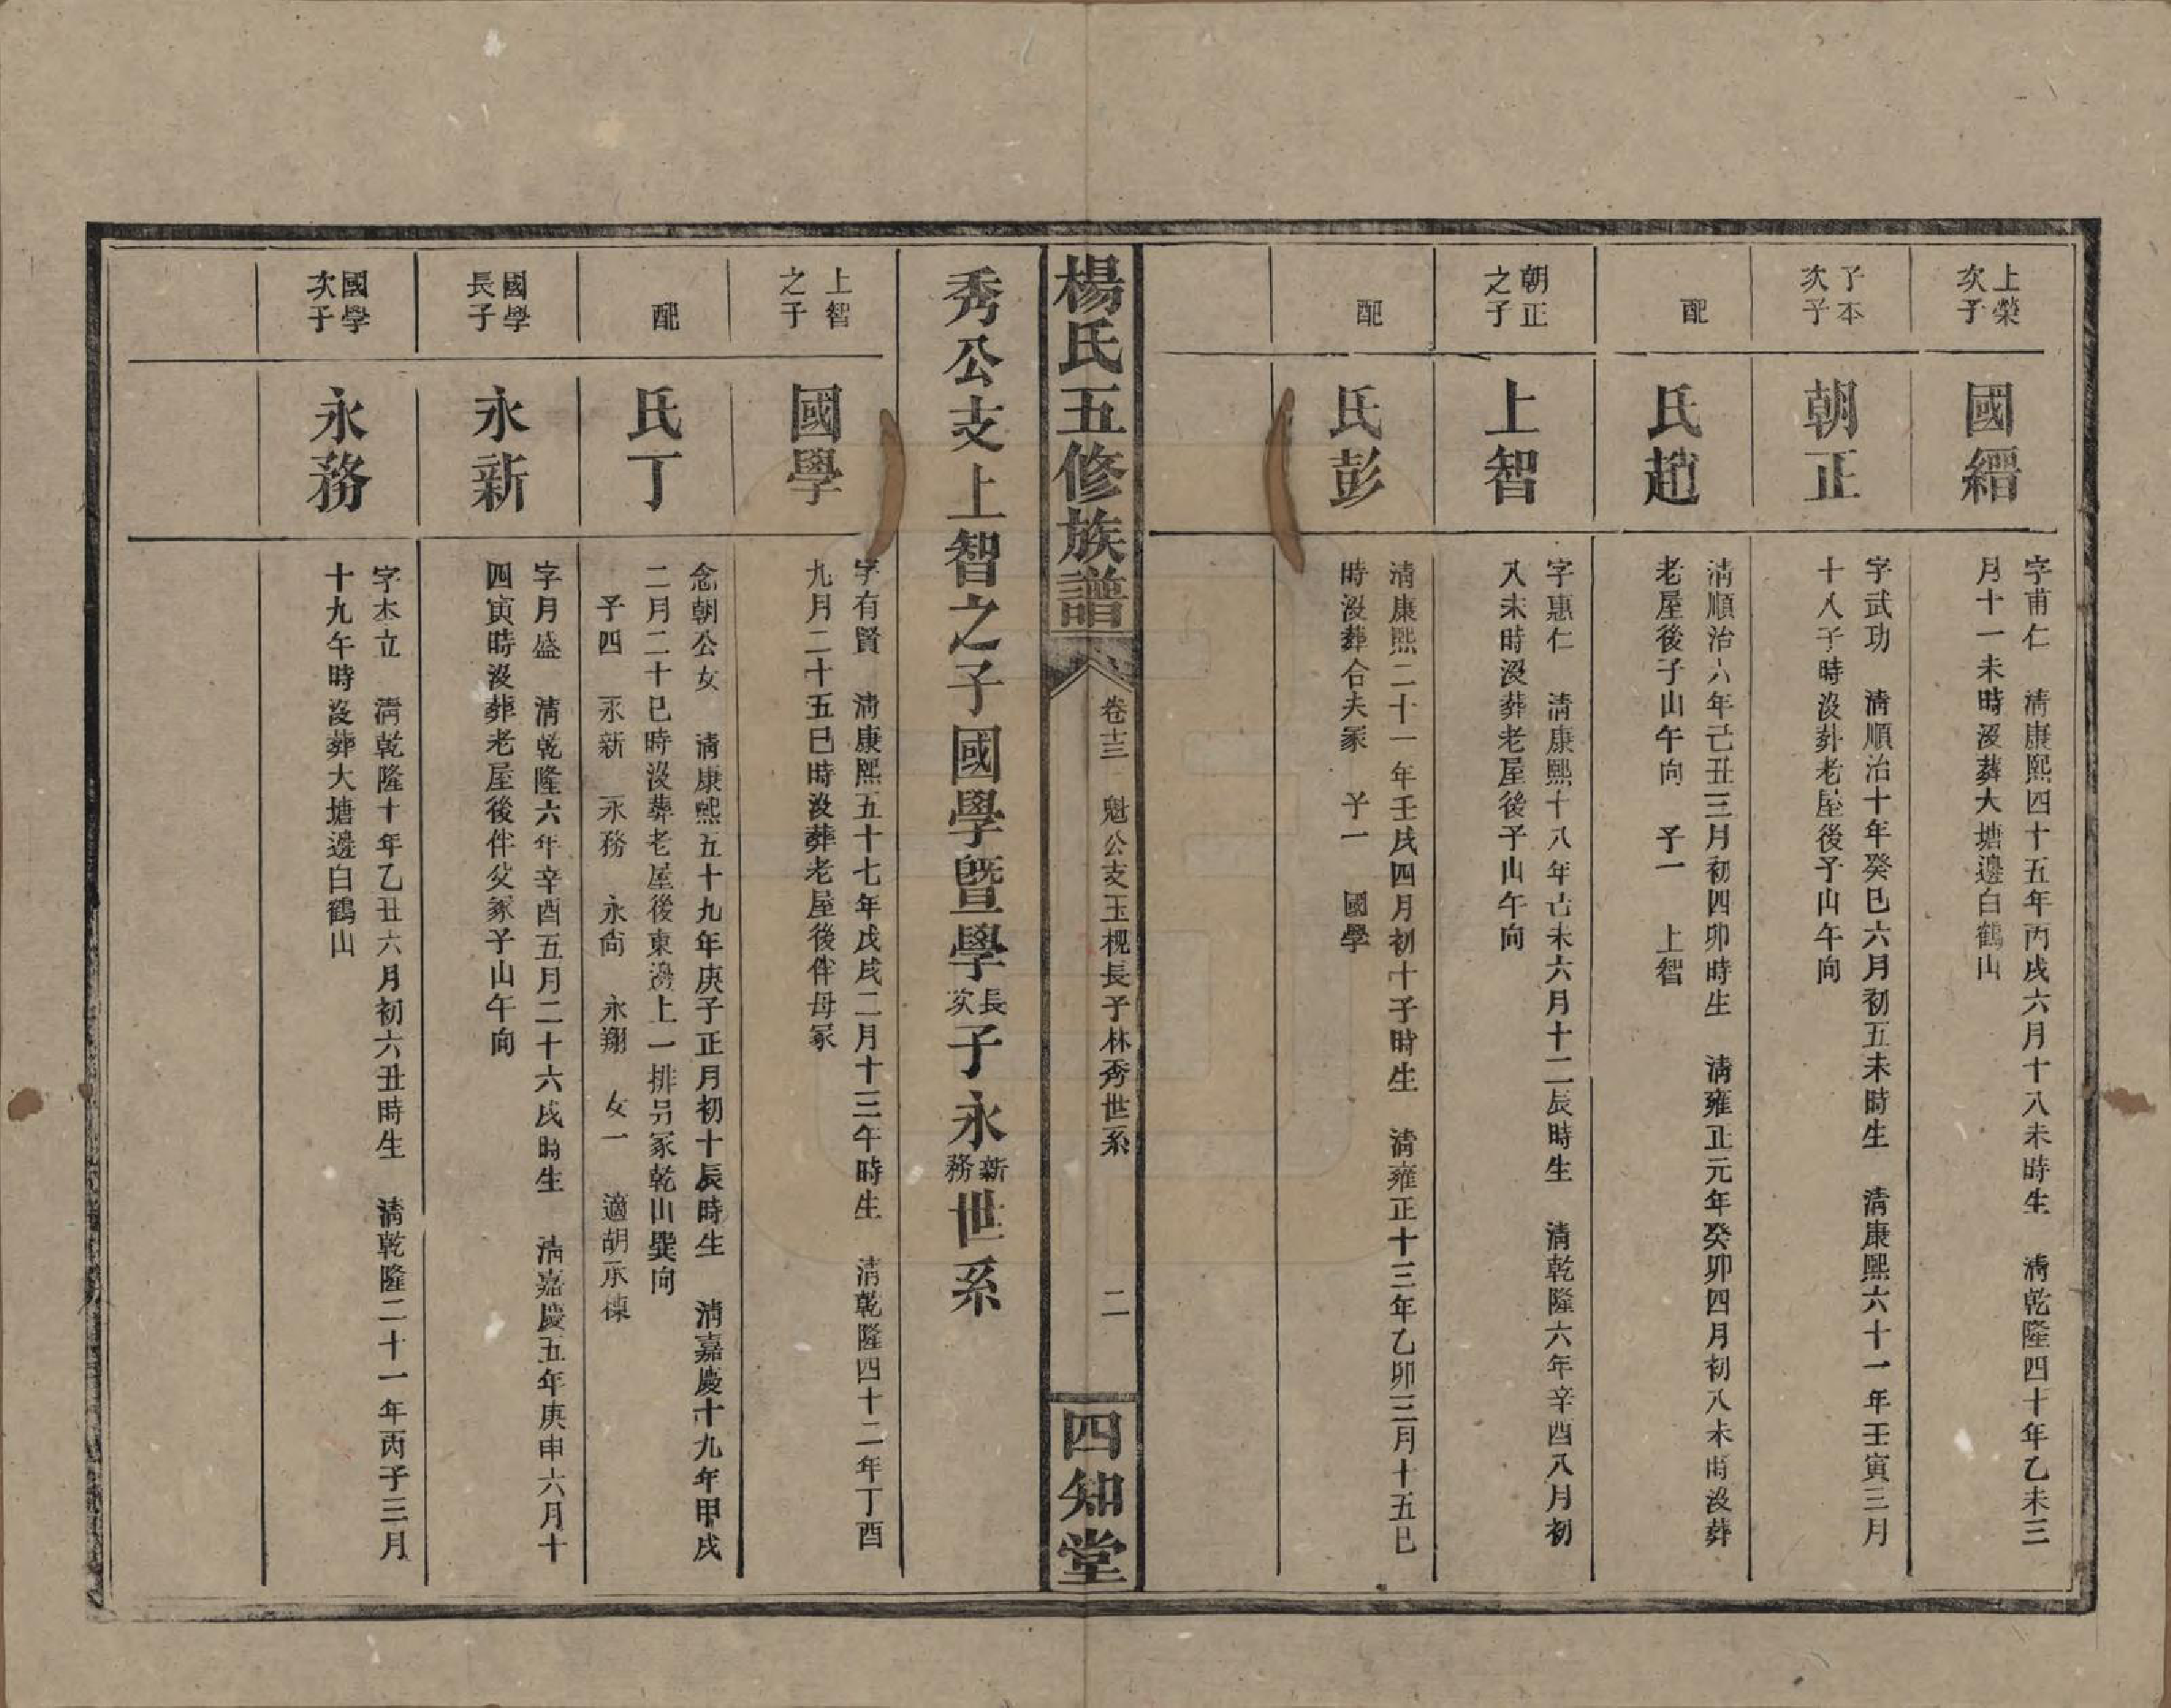 上榮
次子
國縉
字甫仁　清康熙四十五年丙戌六月十八未時生　清乾隆四十年乙未三
月十一未時沒葬大塘邊白鶴山
子本
次子
朝正
字武功　清順治十年癸巳六月初五未時生　清康熙六十一年壬寅三月
十八子時沒葬老屋後子山午向
配
氏趙
清順治六年己丑三月初四卯時生　清雍正元年癸卯四月初八未時沒葬
老屋後子山午向　子一　上智
朝正
之子
上智
字惠仁　清康熙十八年己未六月十二辰時生　清乾隆六年辛酉八月初
八未時沒葬老屋後子山午向
配
氏彭
清康熙二十一年壬戌四月初十子時生　清雍正十三年乙卯三月十五巳
時沒葬合夫冢　子一　國學
楊氏五修族譜
卷十三　魁公支玉梘長子林秀世系
二
四知堂
秀公支上智之子國學暨學長次子永新務世系
上智
之子
國學
字有賢　清康熙五十七年戊戌二月十三午時生　清乾隆四十二年丁酉
九月二十五巳時沒葬老屋後伴母冢
配
氏丁
念朝公女　清康熙五十九年庚子正月初十辰時生　清嘉慶十九年甲戌
二月二十巳時沒葬老屋後東邊上一排另冢乾山巽向
子四　永新　永務　永尙　永翔　女一　適胡承棟
國學
長子
永新
字月盛　清乾隆六年辛酉五月二十六戌時生　清嘉慶五年庚申六月十
四寅時沒葬老屋後伴父冢子山午向
國學
次子
永務
字本立　清乾隆十年乙丑六月初六丑時生　清乾隆二十一年丙子三月
十九午時沒葬大塘邊白鶴山